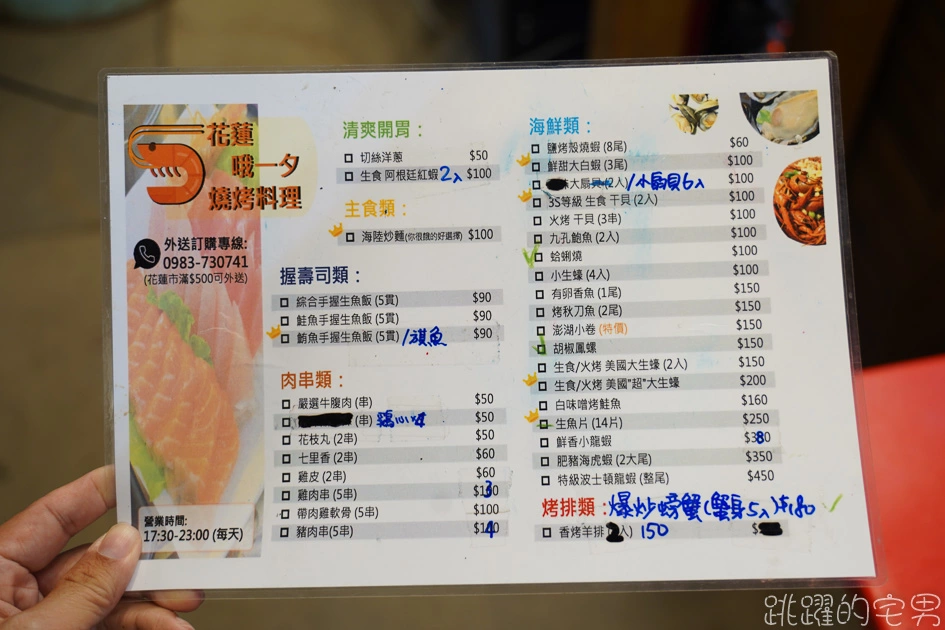 花蓮
哦一夕
燒烤料理
外送訂購專線:
0983-730741
(花蓮市滿$500可外送)
營業時間:
17:30-23:00 (每天)
清爽開胃：
切絲洋蔥 $50
生食 阿根廷紅蝦 2入 $100
主食類：
海陸炒麵(你很餓的好選擇) $100
握壽司類：
綜合手握生魚飯 (5貫) $90
鮭魚手握生魚飯 (5貫) $90
鮪魚手握生魚飯 (5貫) /旗魚 $90
肉串類：
嚴選牛腹肉 (串) $50
(串) 雞心x4 $50
花枝丸 (2串) $50
七里香 (2串) $60
雞皮 (2串) $60
雞肉串 (5串) $130
帶肉雞軟骨 (5串) $100
豬肉串(5串) $140
海鮮類：
鹽烤殼燒蝦 (8尾) $60
鮮甜大白蝦 (3尾) $100
大扇貝(2入) /小扇貝6入 $100
3S等級 生食 干貝 (2入) $100
火烤 干貝 (3串) $100
九孔鮑魚 (2入) $100
蛤蜊燒 $100
小生蠔 (4入) $100
有卵香魚 (1尾) $150
烤秋刀魚 (2尾) $150
澎湖小卷 (特價) $150
胡椒鳳螺 $150
生食/火烤 美國大生蠔 (2入) $150
生食/火烤 美國"超"大生蠔 $200
白味噌烤鮭魚 $160
生魚片 (14片) $250
鮮香小龍蝦 $380
肥豬海虎蝦 (2大尾) $350
特級波士頓龍蝦 (整尾) $450
烤排類：爆炒螃蟹(蟹身5入)$180
香烤羊排 入) 150 $
跳躍的宅男